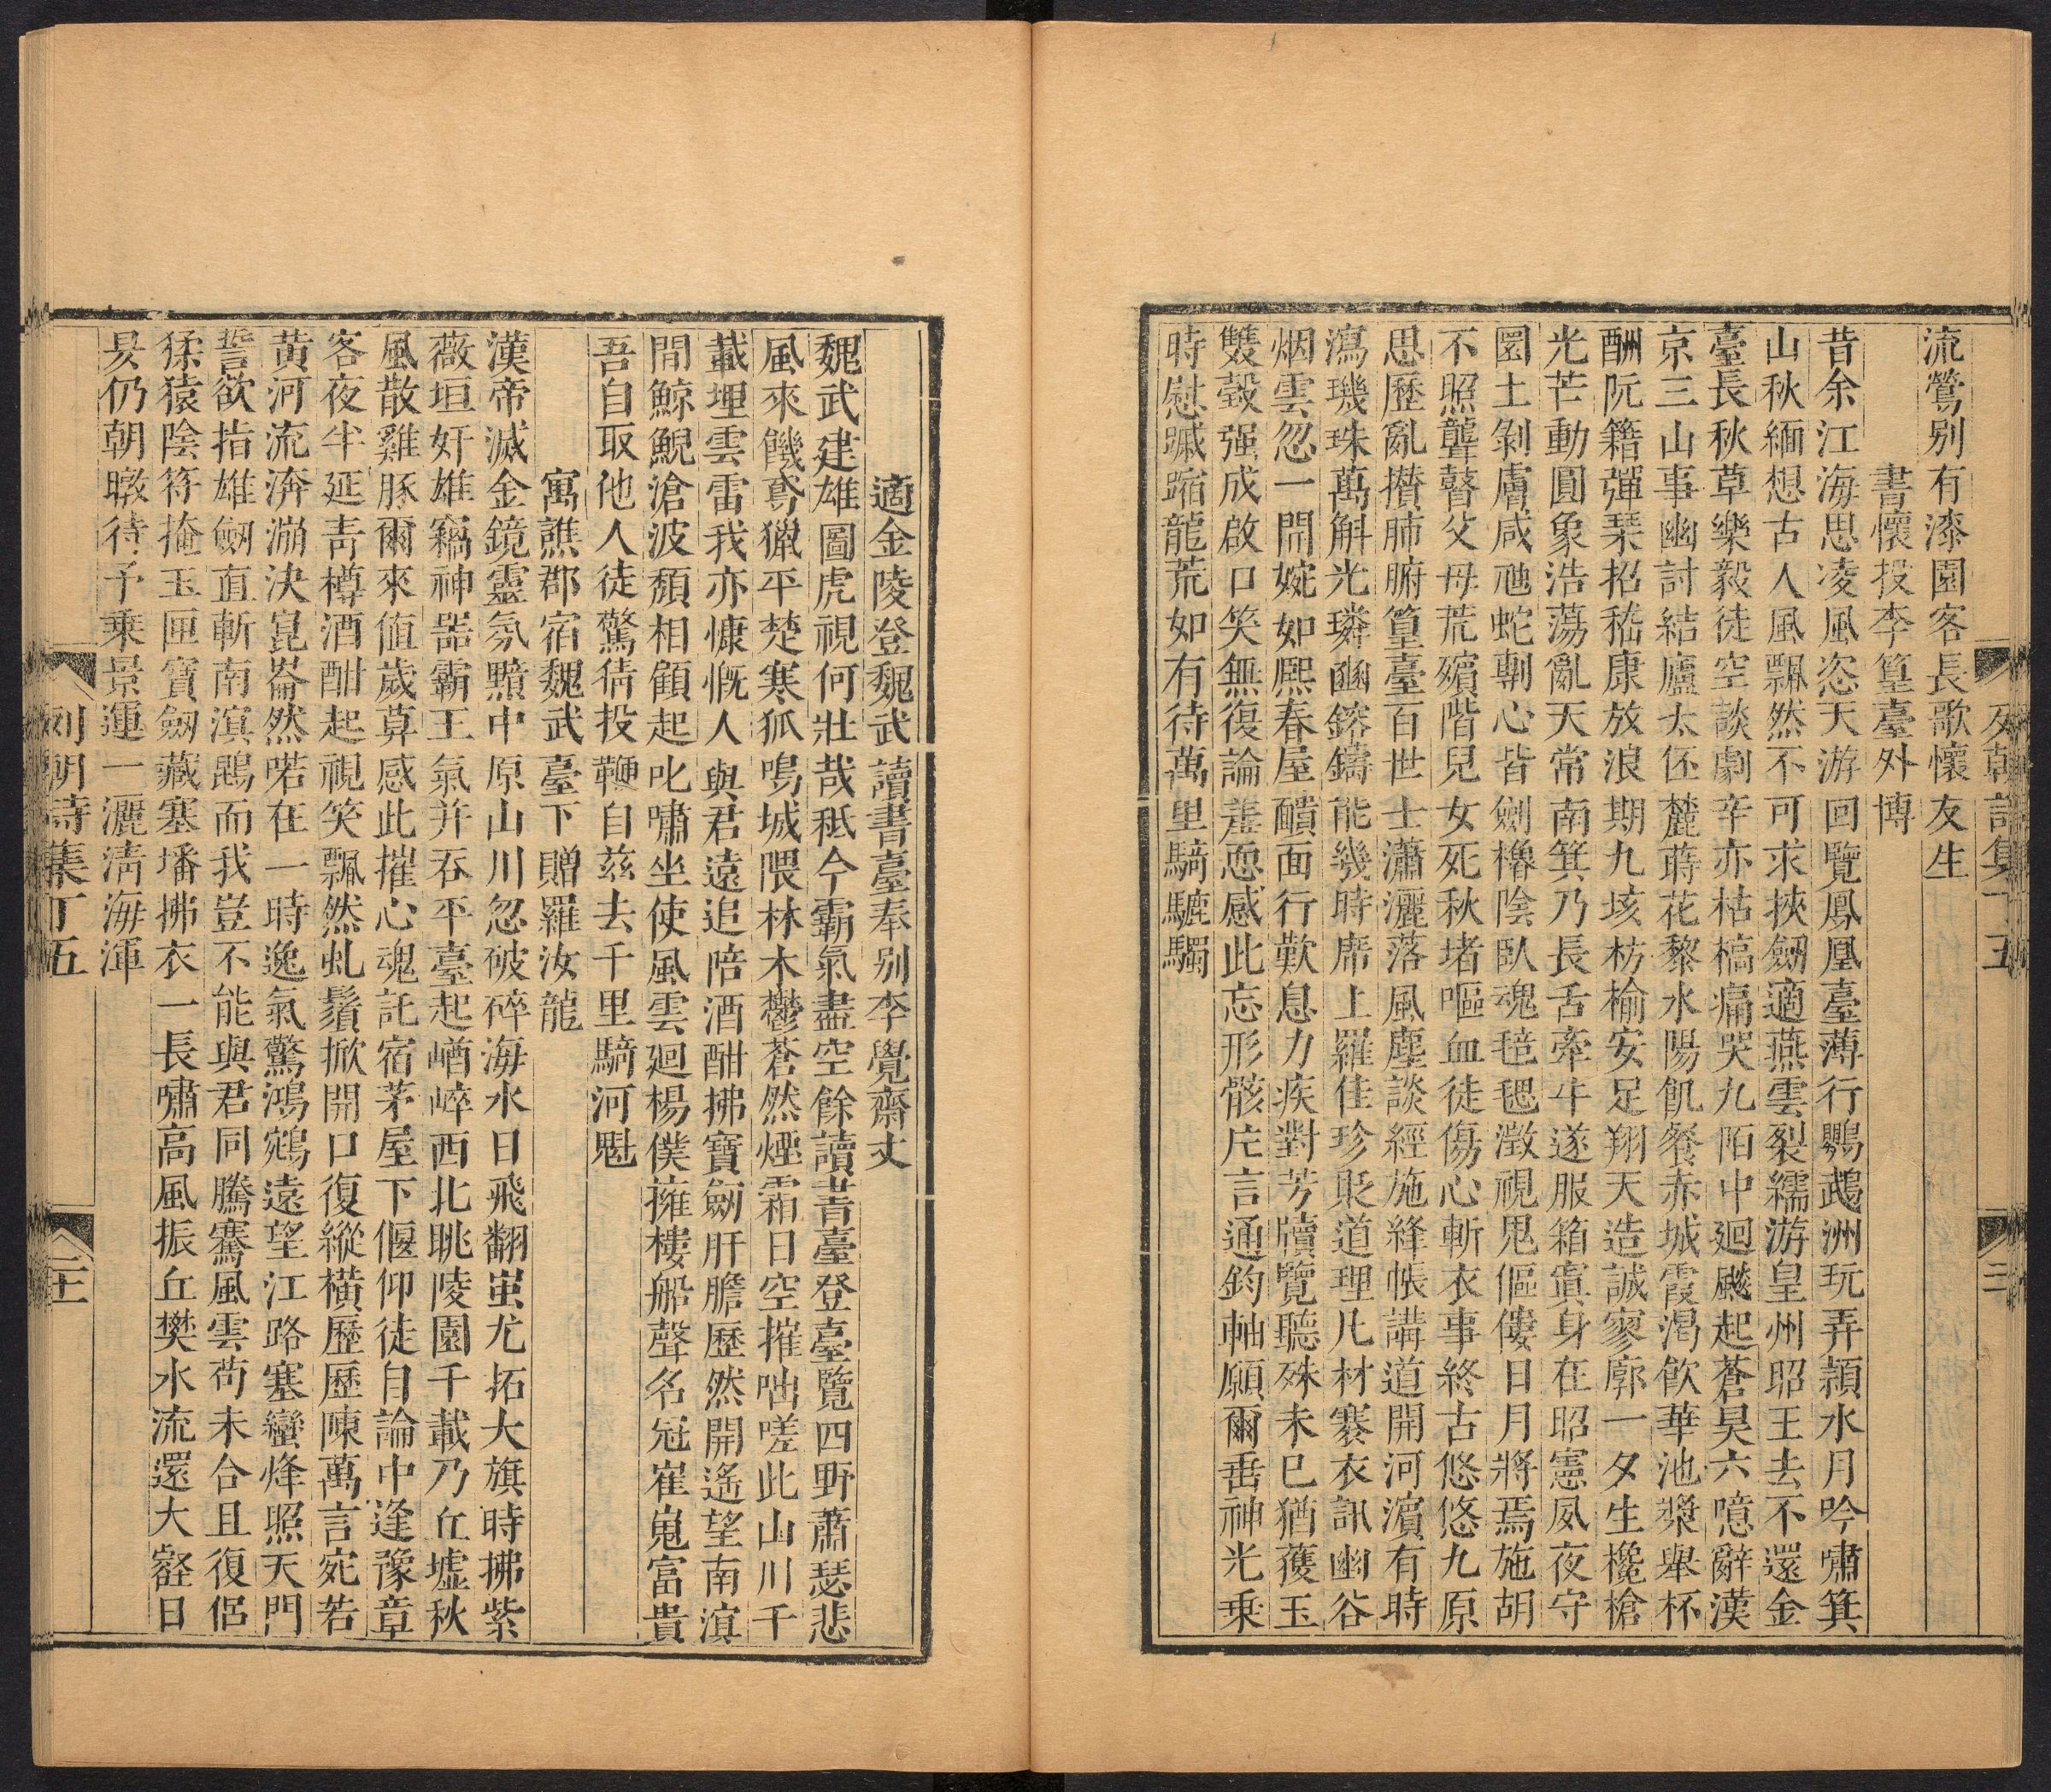 流鶯別有漆園客長歌懷友生
書懷投李篁臺外博
昔余江海思凌風恣天游回覽鳳凰臺薄行鸚鵡洲玩弄潁水月吟嘯箕
山秋緬想古人風飄然不可求挾劒適燕雲裂繻游皇州昭王去不還金
臺長秋草樂毅徒空談劇辛亦枯槁痛哭九陌中廻飇起蒼昊六噫辭漢
京三山事幽討結廬太伾麓蒔花黎水陽飢餐赤城霞渴飲華池漿舉杯
酬阮籍彈琹招嵇康放浪期九垓枋榆安足翔天造誠寥廓一夕生欃槍
光芒動圓象浩蕩亂天常南箕乃長舌牽牛遂服箱寘身在昭憲夙夜守
圜土剝膚咸虺蛇剸心皆劍櫓陰臥魂毰毸澂視鬼傴僂日月將焉施胡
不照聾瞽父母荒殯階兒女死秋堵嘔血徒傷心斬衣事終古悠悠九原
思歷亂攢肺腑篁臺百世士瀟灑落風塵談經施絳帳講道開河濵有時
瀉璣珠萬斛光璘豳鎔鑄能幾時席上羅佳珍聚道理凡材褰衣訊幽谷
烟雲忽一開婉如熙春屋靧面行歎息力疾對芳牘覽聽殊未已猶蒦玉
雙瑴强成啟口笑無復論恚恧感此忘形骸庀言通鈞軸願爾垂神光乗
時慰蹏踏龍荒如有待萬里騎驦驪
適金陵登魏武讀書臺奉別李覺齋丈
魏武建雄圖虎視何壯哉秪今霸氣盡空餘讀書臺登臺覽四野蕭瑟悲
風來饑鳶獵平楚寒狐鳴城隈林木鬱蒼然煙霜日空摧咄嗟此山川千
載埋雲雷我亦慷慨人與君遠追陪酒酣拂寶劒肝膽歷然開遙望南溟
間鯨鯢滄波頹相顧起叱嘯坐使風雲廻楊僕擁樓船聲名冠崔嵬富貴
吾自取他人徒驚猜投鞭自茲去千里騎河魁
寓譙郡宿魏武臺下贈羅汝龍
漢帝滅金鏡靈氛黯中原山川忽破碎海水日飛翻蚩尤拓大旗時拂紫
薇垣奸雄竊神噐霸王氣并吞平臺起崷崪西北眺陵園千載乃丘墟秋
風散雞豚爾來值歲荒感此摧心魂託宿茅屋下偃仰徒自論中逢豫章
客夜半延靑樽酒酣起視笑飄然虬鬚掀開口復縱橫歷歷陳萬言宛若
黄河流濟滿決崑崙然喏在一時逸氣驚鴻鵷遠望江路塞蠻烽照天門
誓欲指雄劒直斬南溟鵾而我豈不能與君同騰騫風雲苟未合且復侶
猱猿陰符掩玉匣寶劒藏塞墦拂衣一長嘯高風振丘樊水流還大壑日
昃仍朝暾待予乗景運一灑淸海渾
列朝詩集丁五